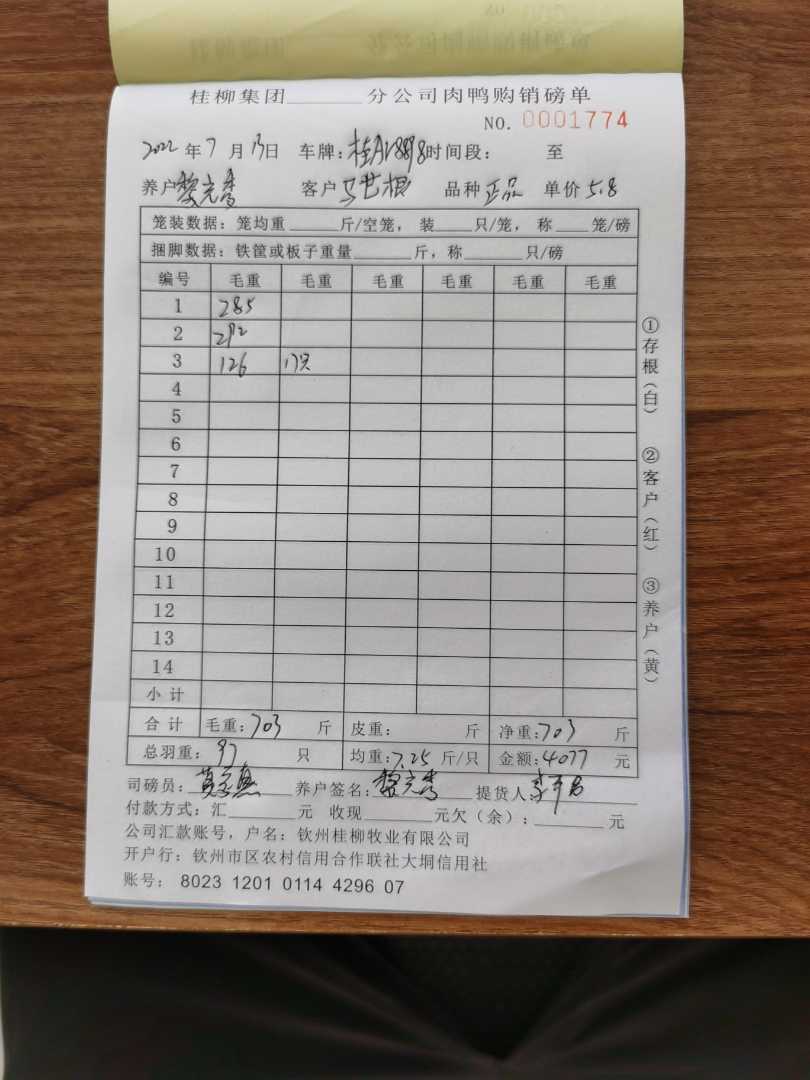 桂柳集团______分公司肉鸭购销磅单
NO. 0001774
2022年7月13日 车牌:桂A 时间段: 至
养户黎克秀 客户马艺根 品种正品 单价5.8
笼装数据:笼均重______斤/空笼,装____只/笼,称____笼/磅
捆脚数据:铁筐或板子重量______斤,称______只/磅
编号 毛重 毛重 毛重 毛重 毛重 毛重
1 285
2 292
3 126 17只
4
5
6
7
8
9
10
11
12
13
14
小计
合计 毛重:703 斤 皮重: 斤 净重:703 斤
总羽重:97 只 均重:7.25 斤/只 金额:4077 元
司磅员: 养户签名:黎克秀 提货人:
付款方式:汇______元 收现______元欠(余):______元
公司汇款账号,户名:钦州桂柳牧业有限公司
开户行:钦州市区农村信用合作联社大垌信用社
账号: 8023 1201 0114 4296 07
①存根(白) ②客户(红) ③养户(黄)